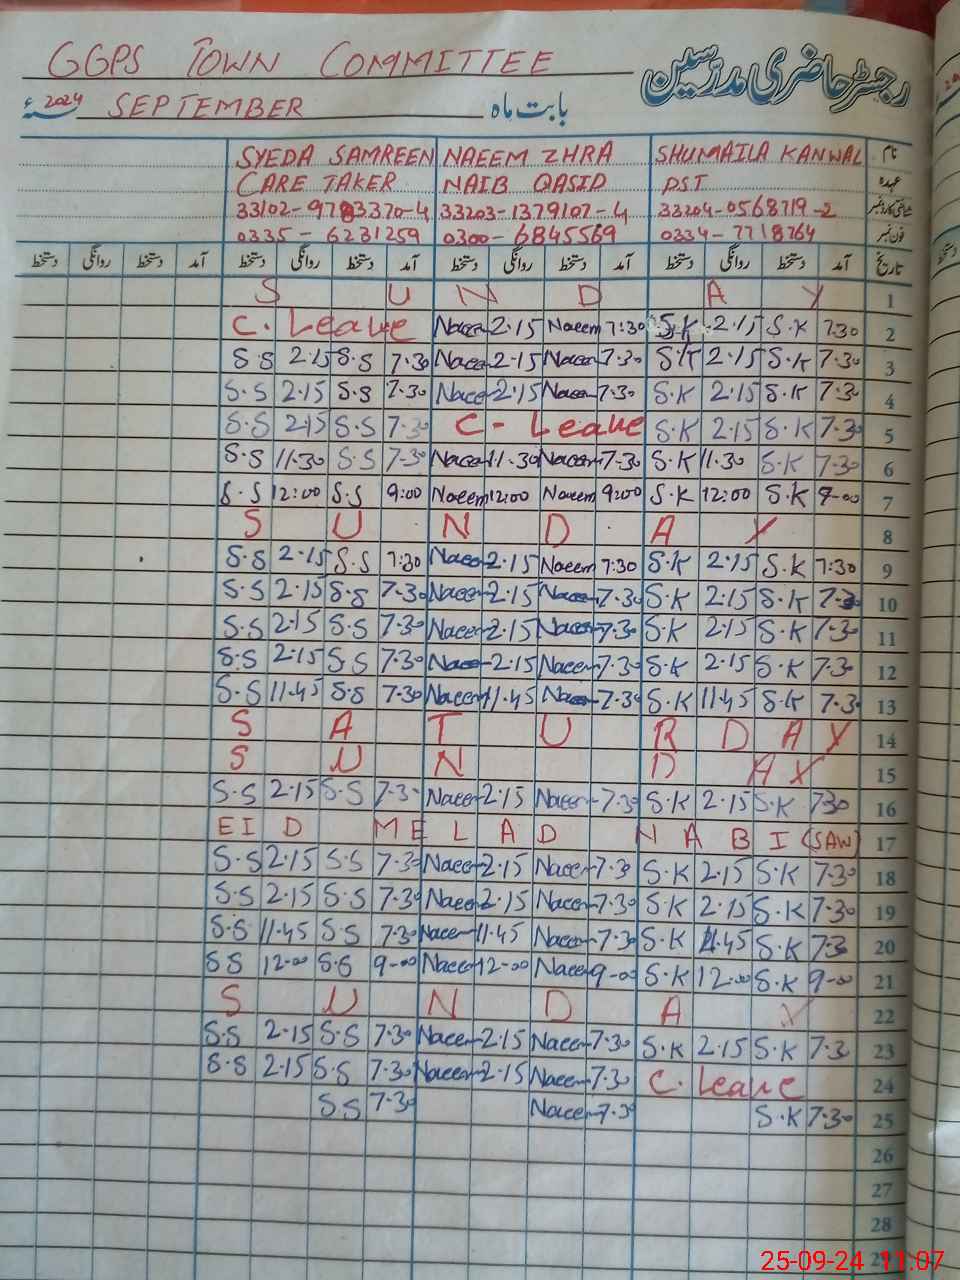 GGPS TOWN COMMITTEE رجسٹر حاضری مدرسین
SEPTEMBER بابت ماہ 2024ء
SYEDA SAMREEN NAEEM ZHRA SHUMAILA KANWAL نام
CARE TAKER NAIB QASID PST عہدہ
33102-9783370-4 33203-1379107-4 33204-0568719-2 شناختی کارڈ نمبر
0335-6231259 0300-6845569 0334-7718764 فون نمبر
دستخط روانگی دستخط آمد دستخط روانگی دستخط آمد دستخط روانگی دستخط آمد دستخط روانگی دستخط آمد تاریخ
S U N D A Y 1
C. Leave Naeem 2.15 Naeem 7:30 S.K 2.15 S.K 7.30 2
S.S 2.15 S.S 7.30 Naeem 2.15 Naeem 7.30 S.K 2.15 S.K 7.30 3
S.S 2.15 S.S 7.30 Naeem 2.15 Naeem 7.30 S.K 2.15 S.K 7.30 4
S.S 2.15 S.S 7.30 C - Leave S.K 2.15 S.K 7.30 5
S.S 11.30 S.S 7.30 Naeem 11.30 Naeem 7.30 S.K 11.30 S.K 7.30 6
S.S 12:00 S.S 9:00 Naeem 12:00 Naeem 9:00 S.K 12:00 S.K 9-00 7
S U N D A Y 8
S.S 2.15 S.S 7:30 Naeem 2.15 Naeem 7:30 S.K 2.15 S.K 7:30 9
S.S 2.15 S.S 7.30 Naeem 2.15 Naeem 7.30 S.K 2.15 S.K 7.30 10
S.S 2.15 S.S 7.30 Naeem 2.15 Naeem 7.30 S.K 2.15 S.K 7.30 11
S.S 2.15 S.S 7.30 Naeem 2.15 Naeem 7.30 S.K 2.15 S.K 7.30 12
S.S 11.45 S.S 7.30 Naeem 11.45 Naeem 7.30 S.K 11.45 S.K 7.30 13
S A T U R D A Y 14
S U N D A Y 15
S.S 2.15 S.S 7.30 Naeem 2.15 Naeem 7.30 S.K 2.15 S.K 730 16
EID MELAD NABI (SAW) 17
S.S 2.15 S.S 7.30 Naeem 2.15 Naeem 7.30 S.K 2.15 S.K 7.30 18
S.S 2.15 S.S 7.30 Naeem 2.15 Naeem 7.30 S.K 2.15 S.K 7.30 19
S.S 11.45 S.S 7.30 Naeem 11.45 Naeem 7.30 S.K 11.45 S.K 7.30 20
S.S 12-00 S.S 9-00 Naeem 12-00 Naeem 9-00 S.K 12.00 S.K 9-00 21
S U N D A Y 22
S.S 2.15 S.S 7.30 Naeem 2.15 Naeem 7.30 S.K 2.15 S.K 7.30 23
S.S 2.15 S.S 7.30 Naeem 2.15 Naeem 7.30 C. Leave 24
S.S 7.30 Naeem 7.30 S.K 7.30 25
26
27
28
25-09-24 11:07